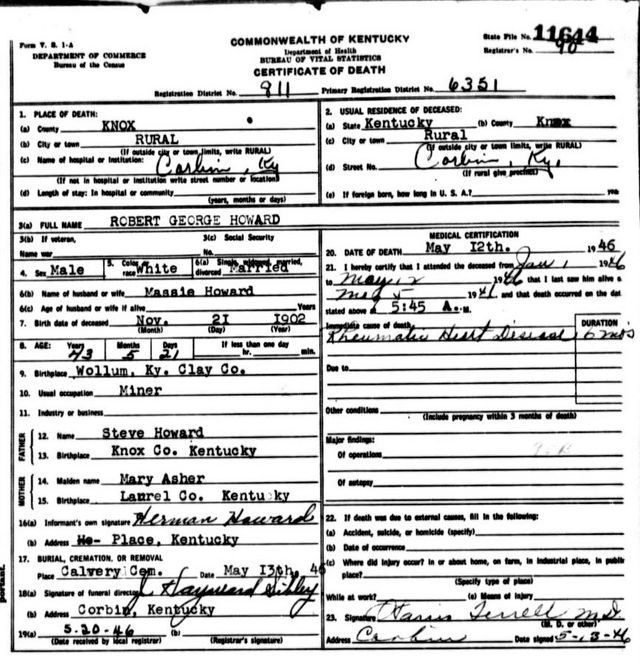 Form V. S. 1-A
DEPARTMENT OF COMMERCE
Bureau of the Census
COMMONWEALTH OF KENTUCKY
Department of Health
BUREAU OF VITAL STATISTICS
CERTIFICATE OF DEATH
State File No. 11644
Registrar's No. 90
Registration District No. 911 Primary Registration District No. 6351
1. PLACE OF DEATH:
(a) County KNOX
(b) City or town RURAL
(If outside city or town limits, write RURAL)
(c) Name of hospital or institution: Corbin, Ky
(If not in hospital or institution write street number or location)
(d) Length of stay: In hospital or community
(years, months or days)
2. USUAL RESIDENCE OF DECEASED:
(a) State Kentucky (b) County Knox
(c) City or town Rural
(If outside city or town limits, write RURAL)
(d) Street No. Corbin, Ky.
(If rural give precinct)
(e) If foreign born, how long in U. S. A.? years
3(a) FULL NAME ROBERT GEORGE HOWARD
3(b) If veteran, 3(c) Social Security
Name war No.
4. Sex Male 5. Color or race White 6(a) Single, widowed, married, divorced Married
6(b) Name of husband or wife Massie Howard
6(c) Age of husband or wife if alive Years
7. Birth date of deceased Nov. 21 1902
(Month) (Day) (Year)
8. AGE: Years 43 Months 5 Days 21 If less than one day
hr. min.
9. Birthplace Wollum, Ky. Clay Co.
10. Usual occupation Miner
11. Industry or business
FATHER
12. Name Steve Howard
13. Birthplace Knox Co. Kentucky
MOTHER
14. Maiden name Mary Asher
15. Birthplace Laurel Co. Kentucky
16(a) Informant's own signature Herman Howard
(b) Address Place, Kentucky
17. BURIAL, CREMATION, OR REMOVAL
Place Calvery Cem. Date May 13th, 46
18(a) Signature of funeral director J. Hayward Sibley
(b) Address Corbin, Kentucky
19(a) 5-20-46 (b)
(Date received by local registrar) (Registrar's signature)
MEDICAL CERTIFICATION
20. DATE OF DEATH May 12th. 1946
21. I hereby certify that I attended the deceased from Jan 1 1946
to May 12 1946 that I last saw him alive o
May 1946 and that death occurred on the dat
stated above a 5:45 A. M.
Immediate cause of death DURATION
Rheumatic Heart Disease 6 mo's
Due to
Other conditions
(Include pregnancy within 3 months of death)
Major findings:
Of operations
Of autopsy
22. If death was due to external causes, fill in the following:
(a) Accident, suicide, or homicide (specify)
(b) Date of occurrence
(c) Where did injury occur? In or about home, on farm, in industrial place, in public
place?
(Specify type of place)
While at work? (e) Means of injury
23. Signature Terrell M.D.
(M. D. or other)
Address Corbin Date signed 5-13-46
portant.